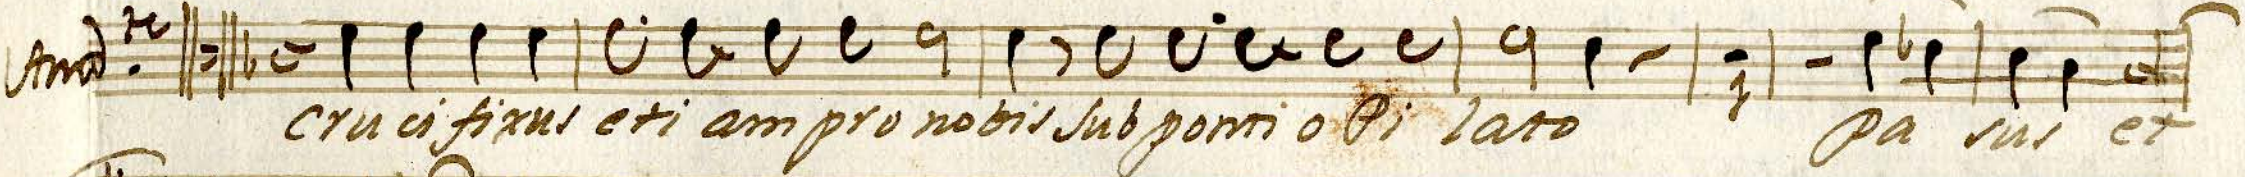 And.te
crucifixus etiam pro nobis sub pontio Pilato pasus et